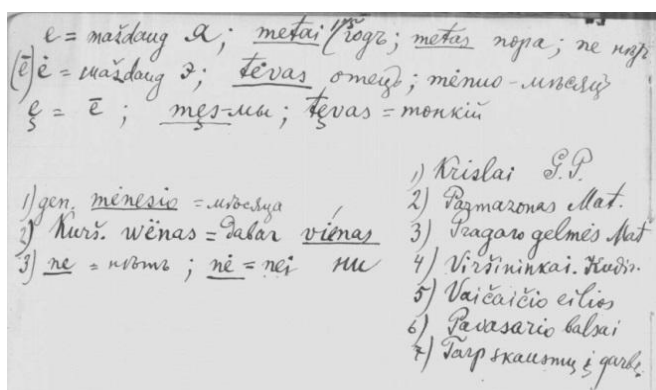 e = maždaug Я; metai годъ; metas пора; не
(ē) ė = maždaug Э; tėvas отецъ; mėnuo - мѣсяцъ
ę = ē; męs = мы; tęvas = тонкій
1) gen. mėnesio = мѣсяца
2) Kurš. wënas = dabar vienas
3) ne = нѣтъ; nė = nei ни
1) Krislai G.P.
2) Pazmazonas Mat.
3) Pragaro gelmės Mat
4) Viršininkai. Kudir.
5) Vaičaičio eilios
6) Pavasario balsai
7) Tarp skausmų į garbę